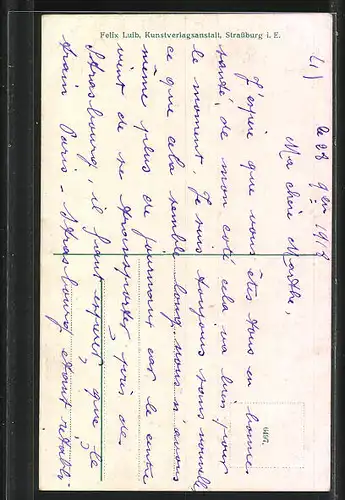 Felix Luib, Kunstverlagsanstalt, Straßburg i. E.
41)
le 28 9bre 1918
Ma chère Marthe,
J'espère que vous êtes tous en bonne
santé, de mon coté cela va bien pour
le moment. Je suis toujours sans nouvelle,
ce que cela semble long, nous n'avons
même plus de journaux car le centre
vient de se transporter près de
Strasbourg, il faut espérer que le
train Paris - Strasbourg étant rétabli
6497.